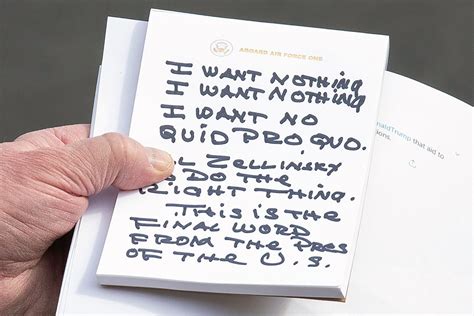 ABOARD AIR FORCE ONE
I WANT NOTHING
I WANT NOTHING
I WANT NO
QUID PRO QUO.
ZELLINSKY
DO THE
RIGHT THING.
THIS IS THE
FINAL WORD
FROM THE PRES
OF THE U.S.
naldTrump that aid to